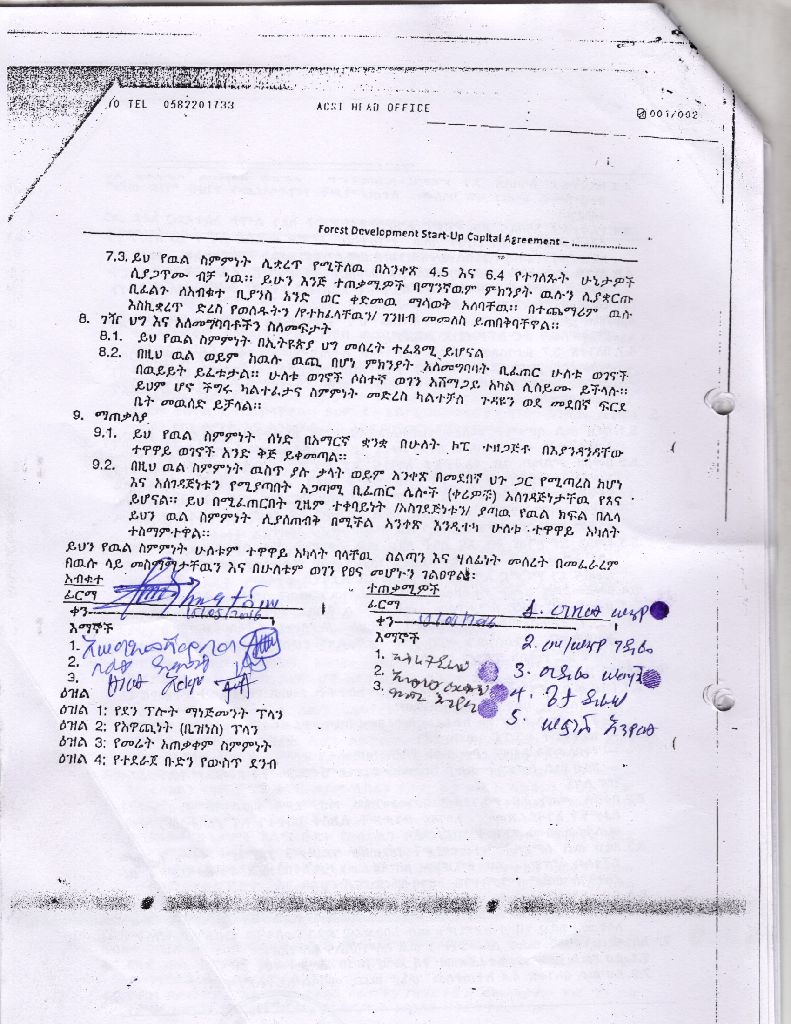 /O TEL 0582201733 ACSI HEAD OFFICE 001/002
Forest Development Start-Up Capital Agreement –
7.3. ይህ የዉል ስምምነት ሊቋረጥ የሚችለዉ በአንቀጽ 4.5 እና 6.4 የተገለጹት ሁኔታዎች
ሲያጋጥሙ ብቻ ነዉ፡፡ ይሁን እንጅ ተጠቃሚዎች በማንኛዉም ምክንያት ዉሉን ሲያቋርጡ
ቢፈልጉ ለአብቁተ ቢያንስ አንድ ወር ቀድመዉ ማሳወቅ አለባቸዉ፡፡ በተጨማሪም ዉሉ
እስኪቋረጥ ድረስ የወሰዱትን /የተከፈላቸዉን/ ገንዘብ መመለስ ይጠበቅባቸኛል፡፡
8. ገዥ ህግ እና አለመግባባቶችን ስለመፍታት
8.1. ይህ የዉል ስምምነት በኢትዮጵያ ህግ መሰረት ተፈጻሚ ይሆናል
8.2. በዚህ ዉል ወይም ከዉሉ ዉጪ በሆነ ምክንያት አለመግባባት ቢፈጠር ሁለቱ ወገኖች
በዉይይት ይፈቱታል፡፡ ሁለቱ ወገኖች ሶስተኛ ወገን አሸማጋይ አካል ሊሰይሙ ይችላሉ፡፡
ይህም ሆኖ ችግሩ ካልተፈታና ስምምነት መድረስ ካልተቻለ ጉዳዩን ወደ መደበኛ ፍርድ
ቤት መዉሰድ ይቻላል፡፡
9. ማጠቃለያ
9.1. ይህ የዉል ስምምነት ሰነድ በአማርኛ ቋንቋ በሁለት ኮፒ ተዘጋጅቶ በእያንዳንዳቸው
ተዋዋይ ወገኖች አንድ ቅጅ ይቀመጣል፡፡
9.2. በዚህ ዉል ስምምነት ዉስጥ ያሉ ቃላት ወይም አንቀጽ በመደበኛ ህጉ ጋር የሚጣረስ ከሆነ
እና አስገዳጅነቱን የሚያጣበት አጋጣሚ ቢፈጠር ሌሎች (ቀሪዎቹ) አስገዳጅነታቸዉ የጸና
ይሆናል፡፡ ይህ በሚፈጠርበት ጊዜም ተቀባይነት /አስገደጅነቱን/ ያጣዉ የዉል ክፍል በሌላ
ይህን ዉል ስምምነት ሊያስጠብቅ በሚችል አንቀጽ እንዲተካ ሁለቱ ተዋዋይ አካላት
ተስማምተዋል፡፡
ይህን የዉል ስምምነት ሁለቱም ተዋዋይ አካላት ባላቸዉ ስልጣን እና ሃላፊነት መሰረት በመፈራረም
በዉሉ ላይ መስማማታቸዉን እና በሁለቱም ወገን የፀና መሆኑን ገልፀዋል፡፡
አብቁተ
ፊርማ
ቀን 15/05/2016
እማኞች
1.
2.
3.
ተጠቃሚዎች
ፊርማ
ቀን 15/05/2016
እማኞች
1.
2.
3.
1.
2.
3.
4.
5.
ዕዝል
ዕዝል 1: የደን ፕሎት ማነጅመንት ፕላን
ዕዝል 2: የአዋጪነት (ቢዝነስ) ፕላን
ዕዝል 3: የመሬት አጠቃቀም ስምምነት
ዕዝል 4: የተደራጀ ቡድን የውስጥ ደንብ